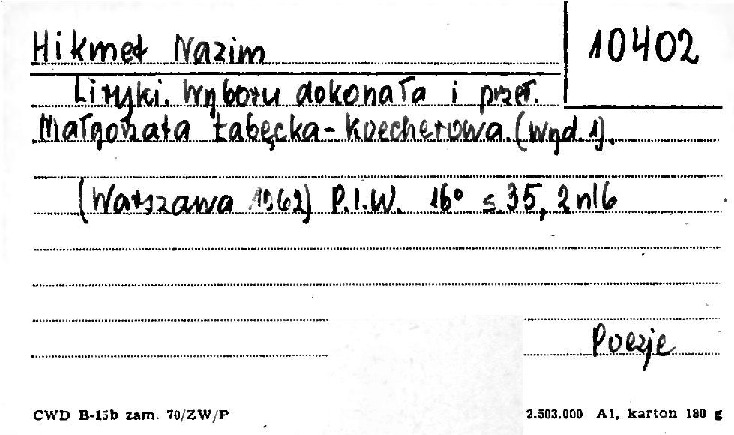 Hikmet Nazim
10402
Liryki. Wyboru dokonała i przeł.
Małgorzata Łabęcka-Koecherowa. (Wyd. 1).
(Warszawa 1962) P.I.W. 16° s. 35, 2 nlb
Poezje
CWD B-15b zam. 70/ZW/P
2.503.000 A1, karton 180 g